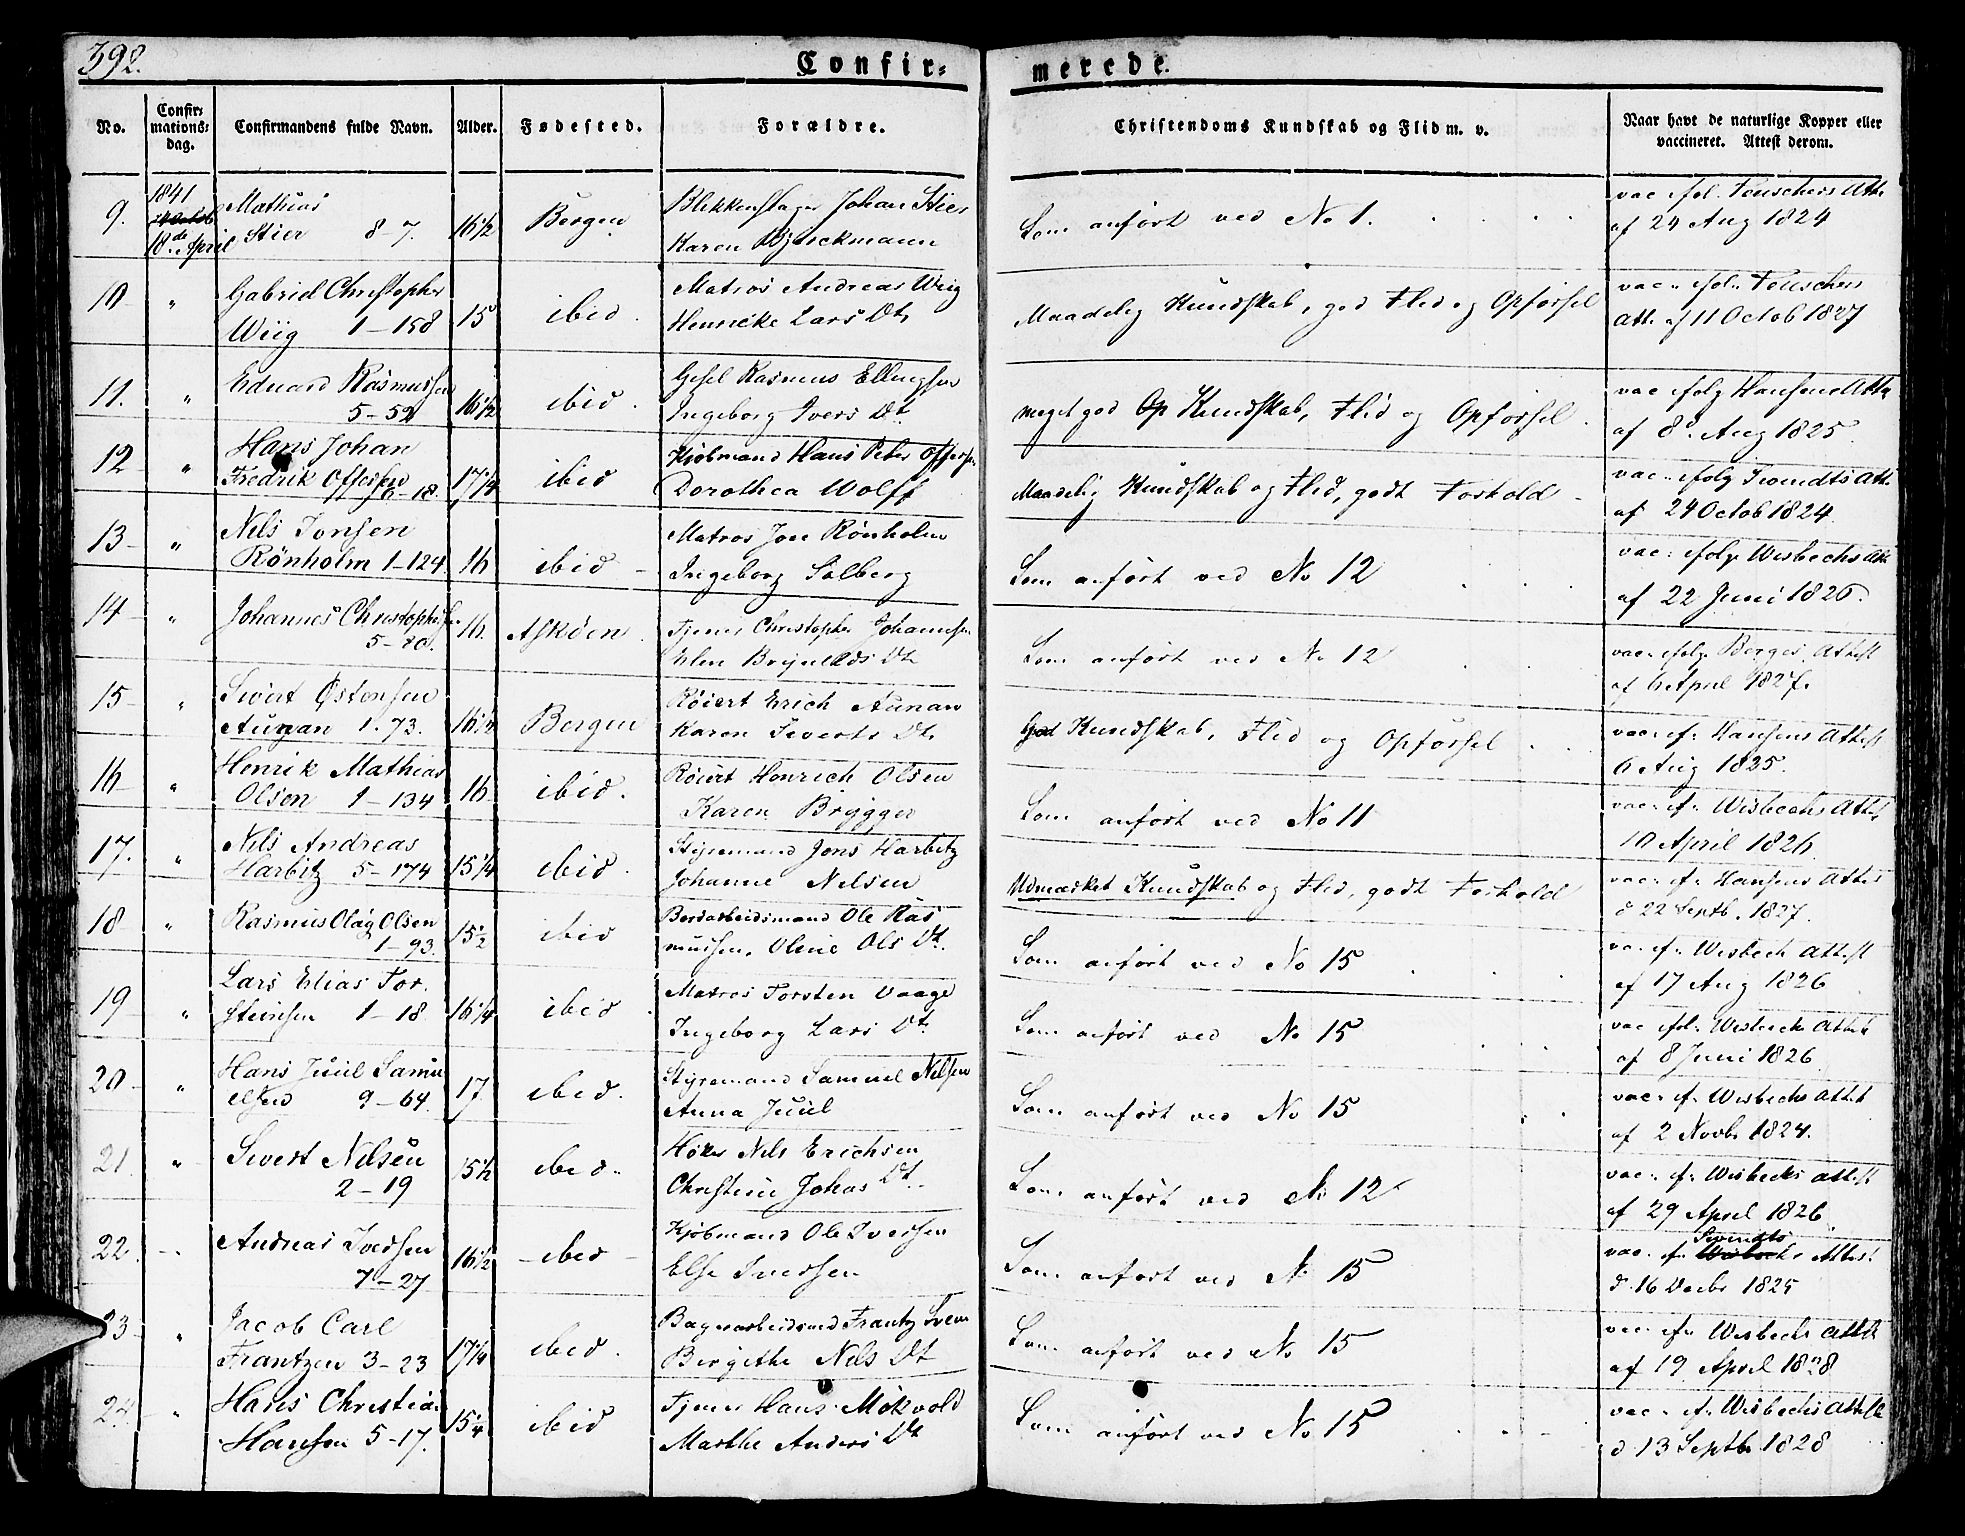 392.
Confir=
merede.
No.
Confir=
mations=
dag.
Confirmandens fulde Navn.
Alder.
Fødested.
Forældre.
Christendoms Kundskab og Flid m. v.
Naar havt de naturlige Kopper eller
vaccineret. Attest derom.
9. 1841 18de April Mathias 16½ Bergen Blikkenslager Johan Stier Som anført ved No 1. vac. iføl. Att.
Stier 8-7. Karen af 24 Aug 1824
10 " Gabriel Christopher 15 ibid. Matros Andreas Wiig Maadelig Kundskab, god Flid og Opførsel vac. iføl.
Wiig 1-158 Lars Dt. Att. af 11 Octob 1827
11. " Eduard Rasmussen 16½ ibid. Gesel Rasmus Ellingsen meget god Kundskab, Flid og Opførsel. vac ifølg Hansens Att.
5-52 Ingeborg Ivers Dt. af 8 Aug 1825
12 " Hans Johan 17¼ ibid Kiøbmand Hans Peter Maadelig Kundskab og Flid, godt Forhold vac. ifølg Att.
Fredrik 6-18. Dorothea Wolff af 24 Octob 1824
13 " Nils Jonsen 16 ibid Matros Jon Rönholm Som anført ved No 12 vac. ifølg. Wisbechs Att.
Rönholm 1-124 Ingeborg Solberg af 22 Juni 1826.
14 " Johannes 16. Askøen. Tjener Christopher Johannesen Som anført ved No 12 vac. ifølg. Attest
5-20. Dt. af 6 April 1827.
15 " Sivert Østensen 16½ Bergen Erich Aunan God Kundskab, Flid og Opførsel vac. if. Hansens Attest
Aunan 1-73. Karen Siverts Dt. 6 Aug 1825.
16 " Henrik Mathias 16 ibid. Henrich Olsen Som anført ved No 11 vac. if. Wisbechs Attest
Olsen 1-134 Karen Brygger 10 April 1826.
17. " Nils Andreas 15¼ ibid. Styremand Jens Harbitz Udmærket Kundskab og Flid, godt Forhold vac. if. Hansens Attest
Harbitz 5-174 Johanne Nilsen d 22 Septb. 1827.
18 " Rasmus Olag Olsen 15½ ibid Ole Ras Som anført ved No 15 vac. if. Wisbech Attest
1-93. mussen. Oline Ols Dt. af 17 Aug 1826
19 " Lars Elias Tor. 16¼ ibid. Matros Torsten Vaage Som anført ved No 15 vac iføl. Wisbechs Attest
steinsen 1-18 Ingeborg Lars Dt. af 8 Juni 1826
20 " Hans Juul Samu 17 ibid. Styremand Samuel Nilsen Som anført ved No 15 vac. if. Wisbechs Attest
elsen 9-64. Anna Juul af 2 Novbr 1824.
21 " Sivert Nilsen 15½ ibid. Høker Nils Erichsen Som anført ved No 12 vac. if. Wisbechs Attest
2-19 Dt. af 29 April 1826
22 Andreas Iversen 16½ ibid Kjøbmand Ole Iversen Som anført ved No 15 vac. if. Attest
7-27 Else Iversen d. 16 Decbr 1825
23 " Jacob Carl 17¼ ibid. Frantz Som anført ved No 15 vac. if. Wisbechs Attest
Frantzen 3-23 Birgithe Nils Dt af 19 April 1828
24 " Hans Christian 15¼ ibid Tjener Hans Som anført ved No 15 vac. if. Wisbechs Attest
Hansen 5-17. Marthe Anders Dt d. 13 Septbr 1828